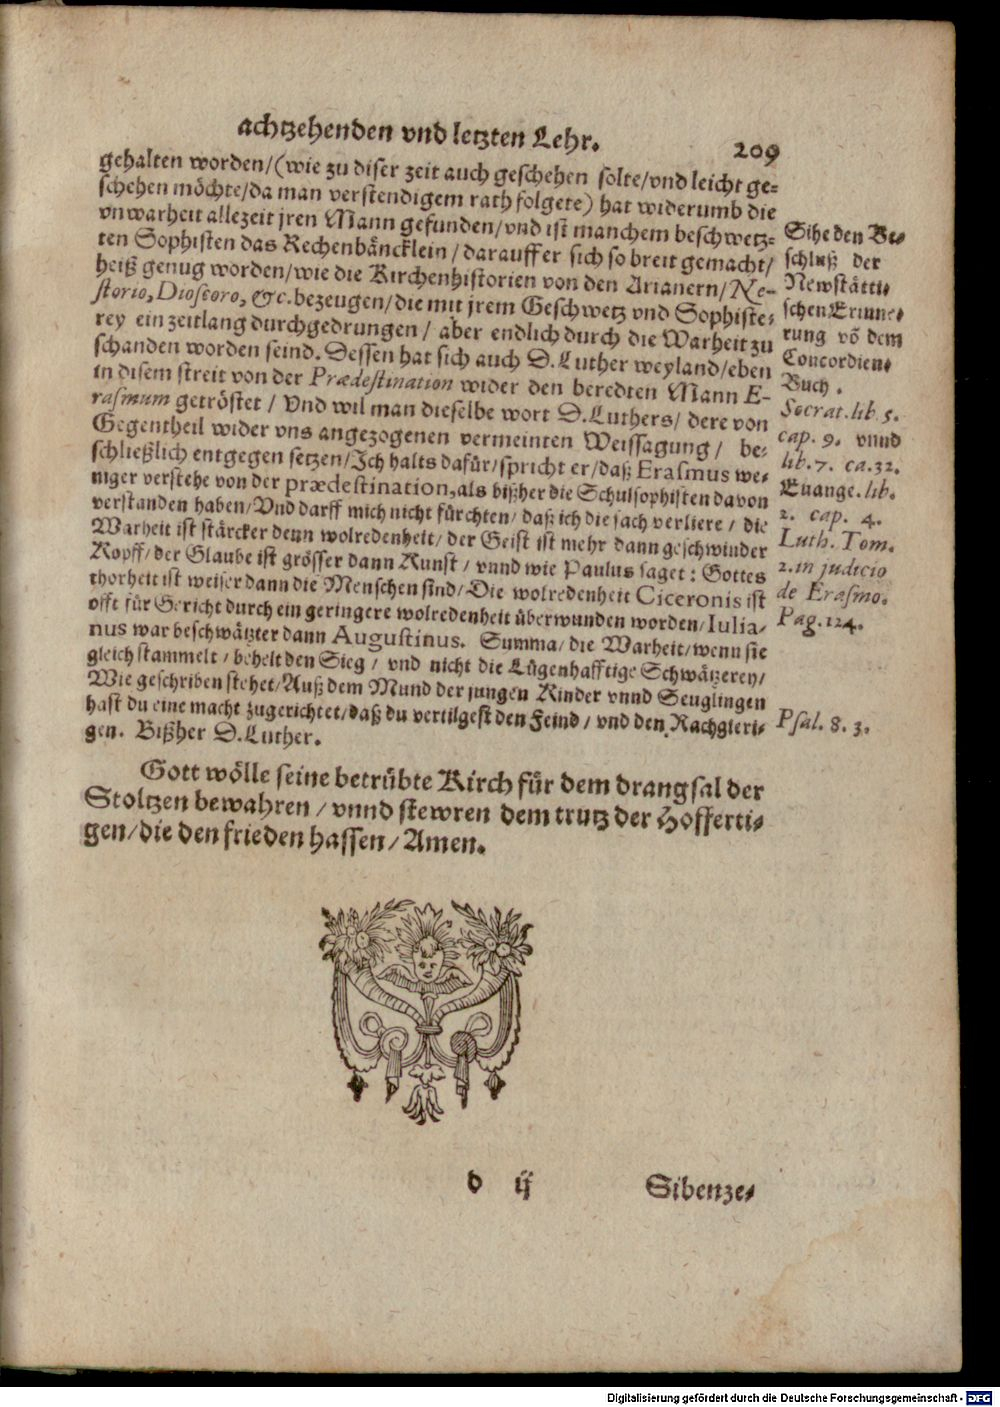 achtzehenden vnd letzten Lehr.
209
gehalten worden/(wie zu diser zeit auch geschehen solte/vnd leicht ge=
schehen möchte/da man verstendigem rath folgete) hat widerumb die
vnwarheit allezeit jren Mann gefunden/vnd ist manchem beschwetz=
ten Sophisten das Rechenbäncklein/darauff er sich so breit gemacht/
heiß genug worden/wie die Kirchenhistorien von den Arianern/Ne-
storio, Dioscoro, &c. bezeugen/die mit jrem Geschwetz vnd Sophiste=
rey ein zeitlang durchgedrungen/ aber endlich durch die Warheit zu
schanden worden seind. Dessen hat sich auch D. Luther weyland/eben
in disem streit von der Prædestination wider den beredten Mann E-
rasmum getröstet/ Vnd wil man dieselbe wort D. Luthers/ dere von
Gegentheil wider vns angezogenen vermeinten Weissagung/ be=
schließlich entgegen setzen/Ich halts dafür/spricht er/daß Erasmus we=
niger verstehe von der prædestination, als bißher die Schulsophisten davon
verstanden haben/Vnd darff mich nicht fürchten/ daß ich die sach verliere/ die
Warheit ist stärcker denn wolredenheit/ der Geist ist mehr dann geschwinder
Kopff/ der Glaube ist grösser dann Kunst/ vnnd wie Paulus saget: Gottes
thorheit ist weiser dann die Menschen sind/ Die wolredenheit Ciceronis ist
offt für Gericht durch ein geringere wolredenheit überwunden worden/ Iulia-
nus war beschwätzter dann Augustinus. Summa/ die Warheit/ wenn sie
gleich stammelt/ behelt den Sieg/ vnd nicht die Lügenhafftige Schwätzerey/
Wie geschriben stehet/ Auß dem Mund der jungen Kinder vnnd Seuglingen
hast du eine macht zugerichtet/daß du vertilgest den Feind/ vnd den Rachgieri=
gen. Bißher D. Luther.
Gott wölle seine betrübte Kirch für dem drangsal der
Stoltzen bewahren/ vnnd stewren dem trutz der Hofferti=
gen/die den frieden hassen/ Amen.
Sihe den Be=
schluß der
Newstätti=
schen Erinne=
rung võ dem
Concordien=
Buch.
Socrat. lib. 5.
cap. 9. vnnd
lib. 7. ca. 32.
Euange. lib.
2. cap. 4.
Luth. Tom.
2. in judicio
de Erasmo.
Pag. 124.
Psal. 8. 3.
d ij
Sibenze=
Digitalisierung gefördert durch die Deutsche Forschungsgemeinschaft - DFG